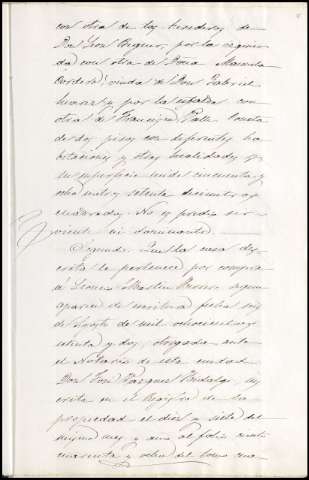 con otra de los herederos de
Don Leon Biguer, por la izquier
da con otra de Doña Manuela
Cordero, viuda de Don Gabriel
Suarez y por la espalda con
otra de Francisco Valle. Consta
de dos pisos con diferentes ha
bitaciones y otras localidades y
su superficie mide cincuenta y
ocho metros y setenta decimetros
cuadrados. No es predio sir
viente ni dominante.
Segundo. Que la casa des
crita le pertenece por compra
á Leonor Sebastian segun
aparece de escritura fecha seis
de Agosto de mil ochocientos
setenta y dos, otorgada ante
el Notario de esta ciudad
Don José Vazquez Hidalgo, ins
crita en el Registro de la
propiedad el dies y siete del
mismo mes y año al folio ciento
cuarenta y ocho del tomo cua